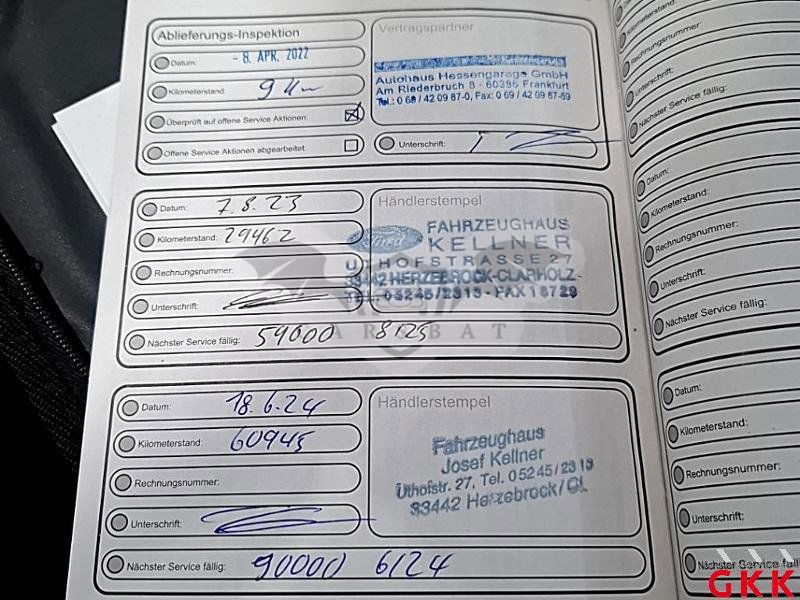 Ablieferungs-Inspektion
Datum: - 8. APR. 2022
Kilometerstand: 9 km
Überprüft auf offene Service Aktionen:
Offene Service Aktionen abgearbeitet:
Vertragspartner
Autohaus Hessengarage GmbH
Am Riederbruch 8 - 60386 Frankfurt
Tel.: 0 69 / 42 09 87-0, Fax: 0 69 / 42 09 87-69
Unterschrift:
Datum: 7.8.23
Kilometerstand: 29462
Rechnungsnummer:
Unterschrift:
Nächster Service fällig: 59000 8/25
Händlerstempel
Ford
FAHRZEUGHAUS
KELLNER
UTHOFSTRASSE 27
33442 HERZEBROCK-CLARHOLZ-
TEL. 05245/2313 - FAX 18729
Datum: 18.6.24
Kilometerstand: 60945
Rechnungsnummer:
Unterschrift:
Nächster Service fällig: 90000 6/24
Händlerstempel
Fahrzeughaus
Josef Kellner
Uthofstr. 27, Tel. 0 52 45 / 23 13
33442 Herzebrock/Cl.
Kilometerstand:
Rechnungsnummer:
Unterschrift:
Nächster Service fällig:
Datum:
Kilometerstand:
Rechnungsnummer:
Unterschrift:
Nächster Service fällig:
Datum:
Kilometerstand:
Rechnungsnummer:
Unterschrift:
Nächster Service fällig:
Datum:
Kilometerstand:
Rechnungsnummer:
Unterschrift:
Nächster Service fäll
GKK